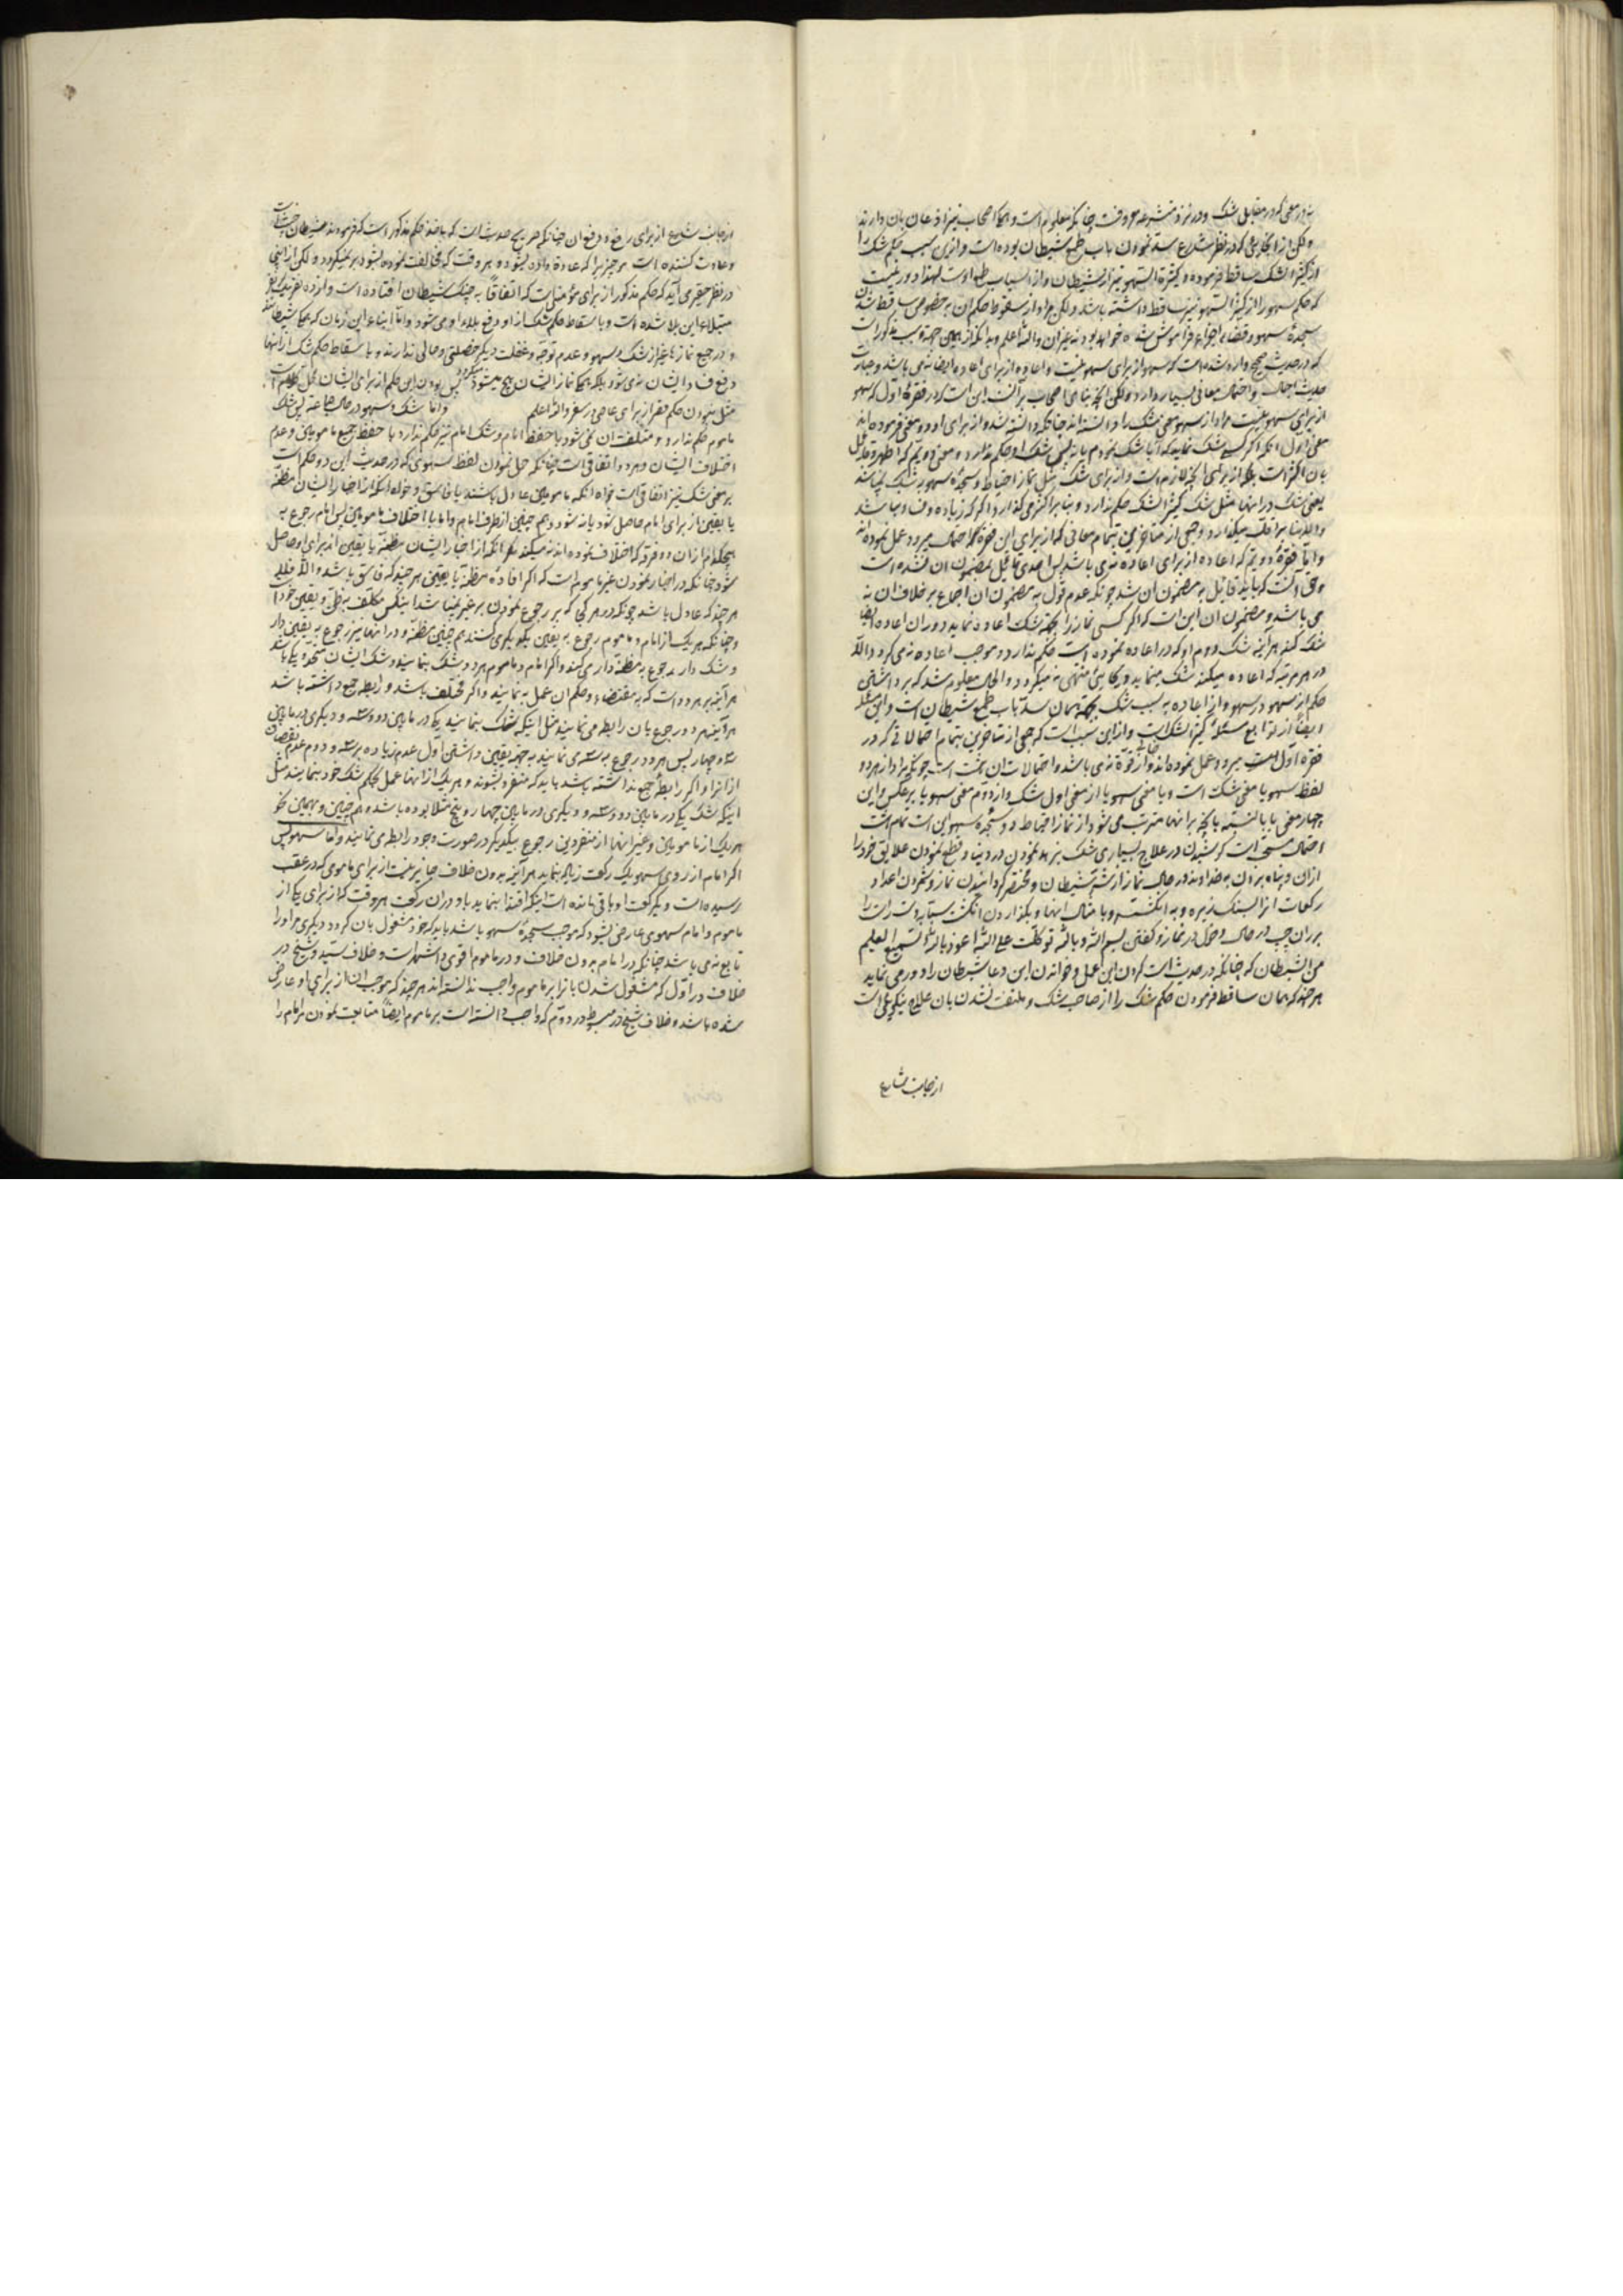 نه در معنی که در مقابل شک و در نزد متشرعه معروفست چنانکه معلوم است و همه اصحاب نیز اذعان بان دارند
ولکن از آنجا که در نظر شارع سد نمودن باب طمع شیطان بوده است و از این سبب حکم شک را
از کثیر الشک ساقط فرموده و کثرة السهو نیز از شیطان و از اسباب طمع اوست لهذا دور نیست
که حکم سهو را از کثیر السهو نیز ساقط داشته باشد ولکن مراد از سقوط حکم ان بخصوص ساقط شدن
سجدهٔ سهو و قضاء اجزاء فراموش شده خواهد بود نه غیر ان والله اعلم و بدانکه از همین جهة و سبب مذکور است
که در حدیث صحیح وارد شده است که سهو از برای سهو نیست و اعاده از برای اعاده ایضا نه می باشد و عبارت
حدیث اجمال و احتمال معانی بسیار دارد ولکن آنچه بنای اصحاب بر آنست این است که در فقرهٔ اول که سهو
از برای سهو نیست مراد از سهو معنی شک را دانسته اند چنانکه دانسته شد و از برای او دو معنی فرموده اند
معنی اول آنکه اگر کسی شک نماید که آیا شک نمودم یا نه پس شک او حکم ندارد و معنی دویم که اظهر و قایل
بان اکثر است بلکه از برای آنچه لازم است از برای شک مثل نماز احتیاط و سجدهٔ سهو شک نمی باشد
یعنی شک در انها مثل شک کثیر الشک حکم ندارد و بنا بر اکثر می گذارد اگر که زیاده و فساد نباشد
والا بنا بر اقل میگذارد و جمعی از متأخرین بتمام معانی که از برای این فقره احتمال میرود عمل نموده اند
و اما فقرهٔ دویم که اعاده از برای اعاده نه می باشد پس احدی قائل بمضمون ان نشده است
و حق آنست که باید قائل به مضمون ان شد چونکه عدم قول به مضمون ان اجماع بر خلاف ان نه
می باشد و مضمون ان این است که اگر کسی نماز را بجهة شک اعاده نماید و در ان اعاده ایضا
شک کند هر آینه شک دوم او که در اعاده نموده است حکم ندارد و موجب اعاده نه می گردد والا
در هر مرتبه که اعاده میکند شک مینماید و بجایی منتهی نه میگردد و الحال معلوم شد که برداشتن
حکم از سهو در سهو و از اعاده به سبب شک بجهة همان سد باب طمع شیطان است و این مسئله
ایضا از توابع مسئلهٔ کثیر الشک است و از این سبب است که جمعی از متأخرین بتمام احتمالاتی که در
فقره اول است میرود عمل نموده اند و از قوة خالی نه می باشد و احتمالات ان هشت است چونکه مراد از هر دو
لفظ سهو یا معنی شک است و یا معنی سهو یا از معنی اول شک و از دوم معنی سهو یا بر عکس و این
چهار معنی یا بالنسبه بآنچه بر انها مترتب می شود از نماز احتیاط و سجده سهو این است تمام هشت
احتمال مستحق است کوشیدن در علاج بسیاری شک بزهد نمودن در دنیا و قطع نمودن علایق خود را
از ان و پناه بردن به خداوند در حال نماز از شر شیطان و مختصر گردانیدن نماز و شمردن اعداد
رکعات انرا بسنک ریزه و به انگشتر و یا مثال انها و بگذاردن انگشت سبابه دست راست را
بر ران چپ در حال دخول در نماز و گفتن بسم الله و بالله توکلت علی الله اعوذ بالله السمیع العلیم
من الشیطان که چنانکه در حدیث است کردن این عمل و خواندن این دعا شیطان را دور می نماید
هر چند که همان ساقط فرمودن حکم شک را از صاحب شک و ملتفت نشدن بان علاج نیکوئی است
از جانب شارع
از جانب شارع از برای رفع و دفع ان چنانکه صریح حدیث است که ماخذ حکم مذکور است که فرمودند شیطان خبیث است
و عادت کننده است مر چیز را که عادة داده بشود و هر وقت که مخالفت نموده بشود بر نمیگردد ولکن از اینجا
در نظر حقیر می آید که حکم مذکور از برای مؤمنی است که اتفاقا به چنگ شیطان افتاده است و
مبتلاء این بلا شده است و با سقاط حکم شک از او دفع بلاء او می شود و اما ابناء این زمان که
و در جمیع نمازها غیر از شک و سهو و عدم توجه و غفلت دیگر خصلتی و حالی ندارند و با سقاط حکم شک از انها
دفع فساد ایشان نه می شود بلکه همه نماز ایشان هیچ میشود پس بودن این حکم از برای ایشان محل تأمل است
مثل نبودن حکم قصر از برای عاصی در سفر والله اعلم و اما شک و سهو در حال جماعة پس شک
ماموم حکم ندارد و ملتفت ان نمی شود با حفظ امام و شک امام نیز حکم ندارد با حفظ جمیع مامومین و عدم
اختلاف ایشان و هر دو اتفاقی است چنانکه حمل نمودن لفظ سهوی که در حدیث این دو حکم است
بر معنی شک نیز اتفاقی است خواه آنکه مامومین عادل باشند یا فاسق و خواه آنکه از اخبار ایشان مظنه
یا یقین از برای امام حاصل شود یا نه شود و هم چنین از طرف امام و اما با اختلاف مامومین پس امام رجوع به
هیچکدام از ان دو فرقه که اختلاف نموده اند نه میکند مگر آنکه از اخبار ایشان مظنه یا یقین از برای او حاصل
شود چنانکه در اخبار نمودن غیر ماموم است که اگر افادهٔ مظنه یا یقین هر چند که فاسق باشد والا فلا
هر چند که عادل باشد چونکه در هر کی که بر رجوع نمودن بر غیر نمی باشد اینکس مکلف به ظن و یقین خود است
و چنانکه هر یک از امام و ماموم رجوع به یقین یکدیگری کنند هم چنین مظنه و در انها نیز رجوع به یقین دار
و شک دار رجوع به مظنه دار می کند و اگر امام و ماموم هر دو شک بنمایند و شک ایشان متحد و یکی باشد
هر آینه بر هر دو است که به مقتضاء حکم ان عمل به نمایند و اگر مختلف باشد و رابطه جمع داشته باشد
هر آینه هر دو رجوع بان رابطه می نمایند مثل اینکه شک بنمایند یکی در مابین دو و سه و دیگری در مابین
سه و چهار پس هر دو رجوع به سه می نمایند به جهة یقین داشتن اول عدم زیاده بر سه و دوم عدم نقصان
از انرا و اگر رابطهٔ جمع نداشته باشد باید که منفرد بشوند و هر یک از انها عمل بحکم شک خود بنمایند مثل
اینکه شک یکی در مابین دو و سه و دیگری در مابین چهار و پنج مثلا بوده باشد و هم چنین و
هر یک از مامومین و غیر انها از منفردین رجوع بیکدیگر در صورت وجود رابطه می نمایند و اما سهو پس
اگر امام از روی سهو یک رکعت زیاد بنماید هر آینه بدون خلاف جایز نیست از برای ماموم که در عقب
رسیده است و یک رکعت او باقی مانده است اینکه اقتدا بنماید باو در ان رکعت هر وقت که از برای یکی از
ماموم و امام سهوی عارض بشود که موجب سجدهٔ سهو باشد باید که خود مشغول بان گردد و دیگری مر او را
تابع نه می باشد چنانکه در امام بدون خلاف و در ماموم اقوی و اشهر است و خلاف سید و شیخ در
خلاف در اول که مشغول شدن بانرا بر ماموم واجب ندانسته اند هر چند که موجب ان از برای او عارض
شده باشد و خلاف شیخ در مبسوط در دوم که واجب دانسته است بر ماموم ایضا متابعت نمودن مر امام را